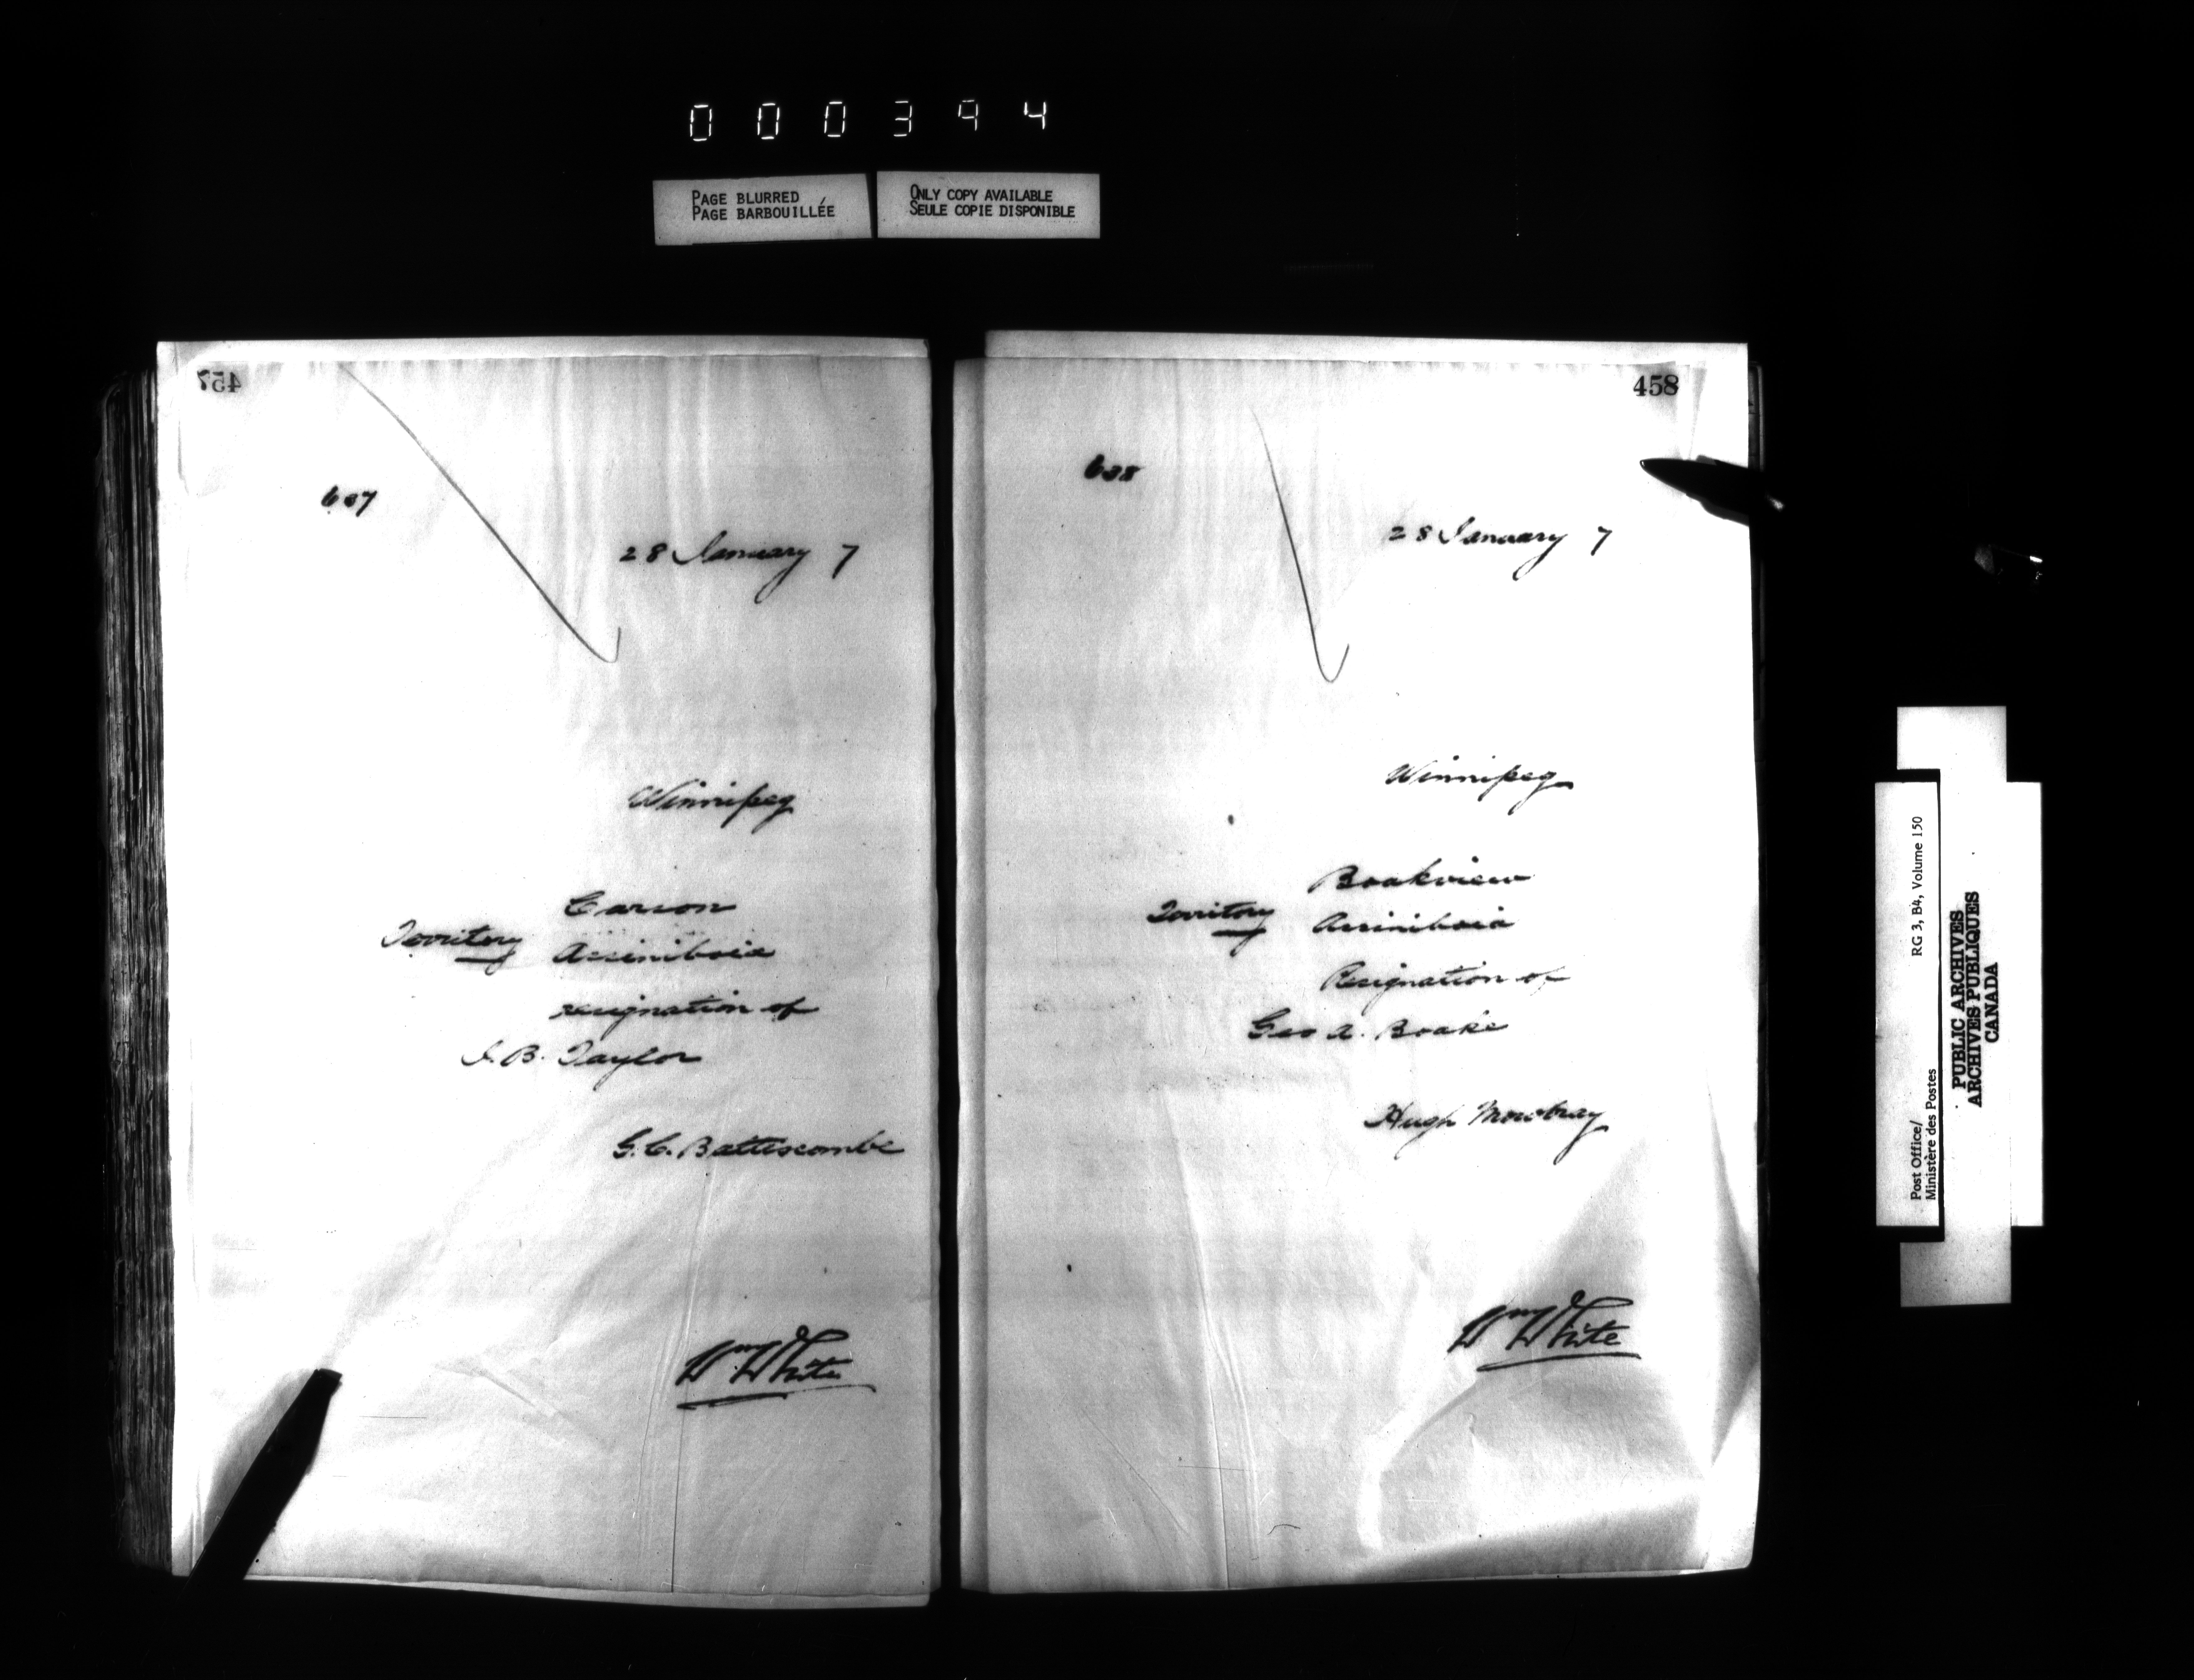 000394
PAGE BLURRED
PAGE BARBOUILLÉE
ONLY COPY AVAILABLE
SEULE COPIE DISPONIBLE
457
607
28 January 7
Winnipeg
Carson
Territory Assiniboia
resignation of
J. B. Taylor
G. C. Battiscombe
Wm White
458
608
28 January 7
Winnipeg
Boakview
Territory Assiniboia
Resignation of
Geo A. Boake
Hugh Mowbray
Wm White
Post Office/
Ministère des Postes
RG 3, B4, Volume 150
PUBLIC ARCHIVES
ARCHIVES PUBLIQUES
CANADA